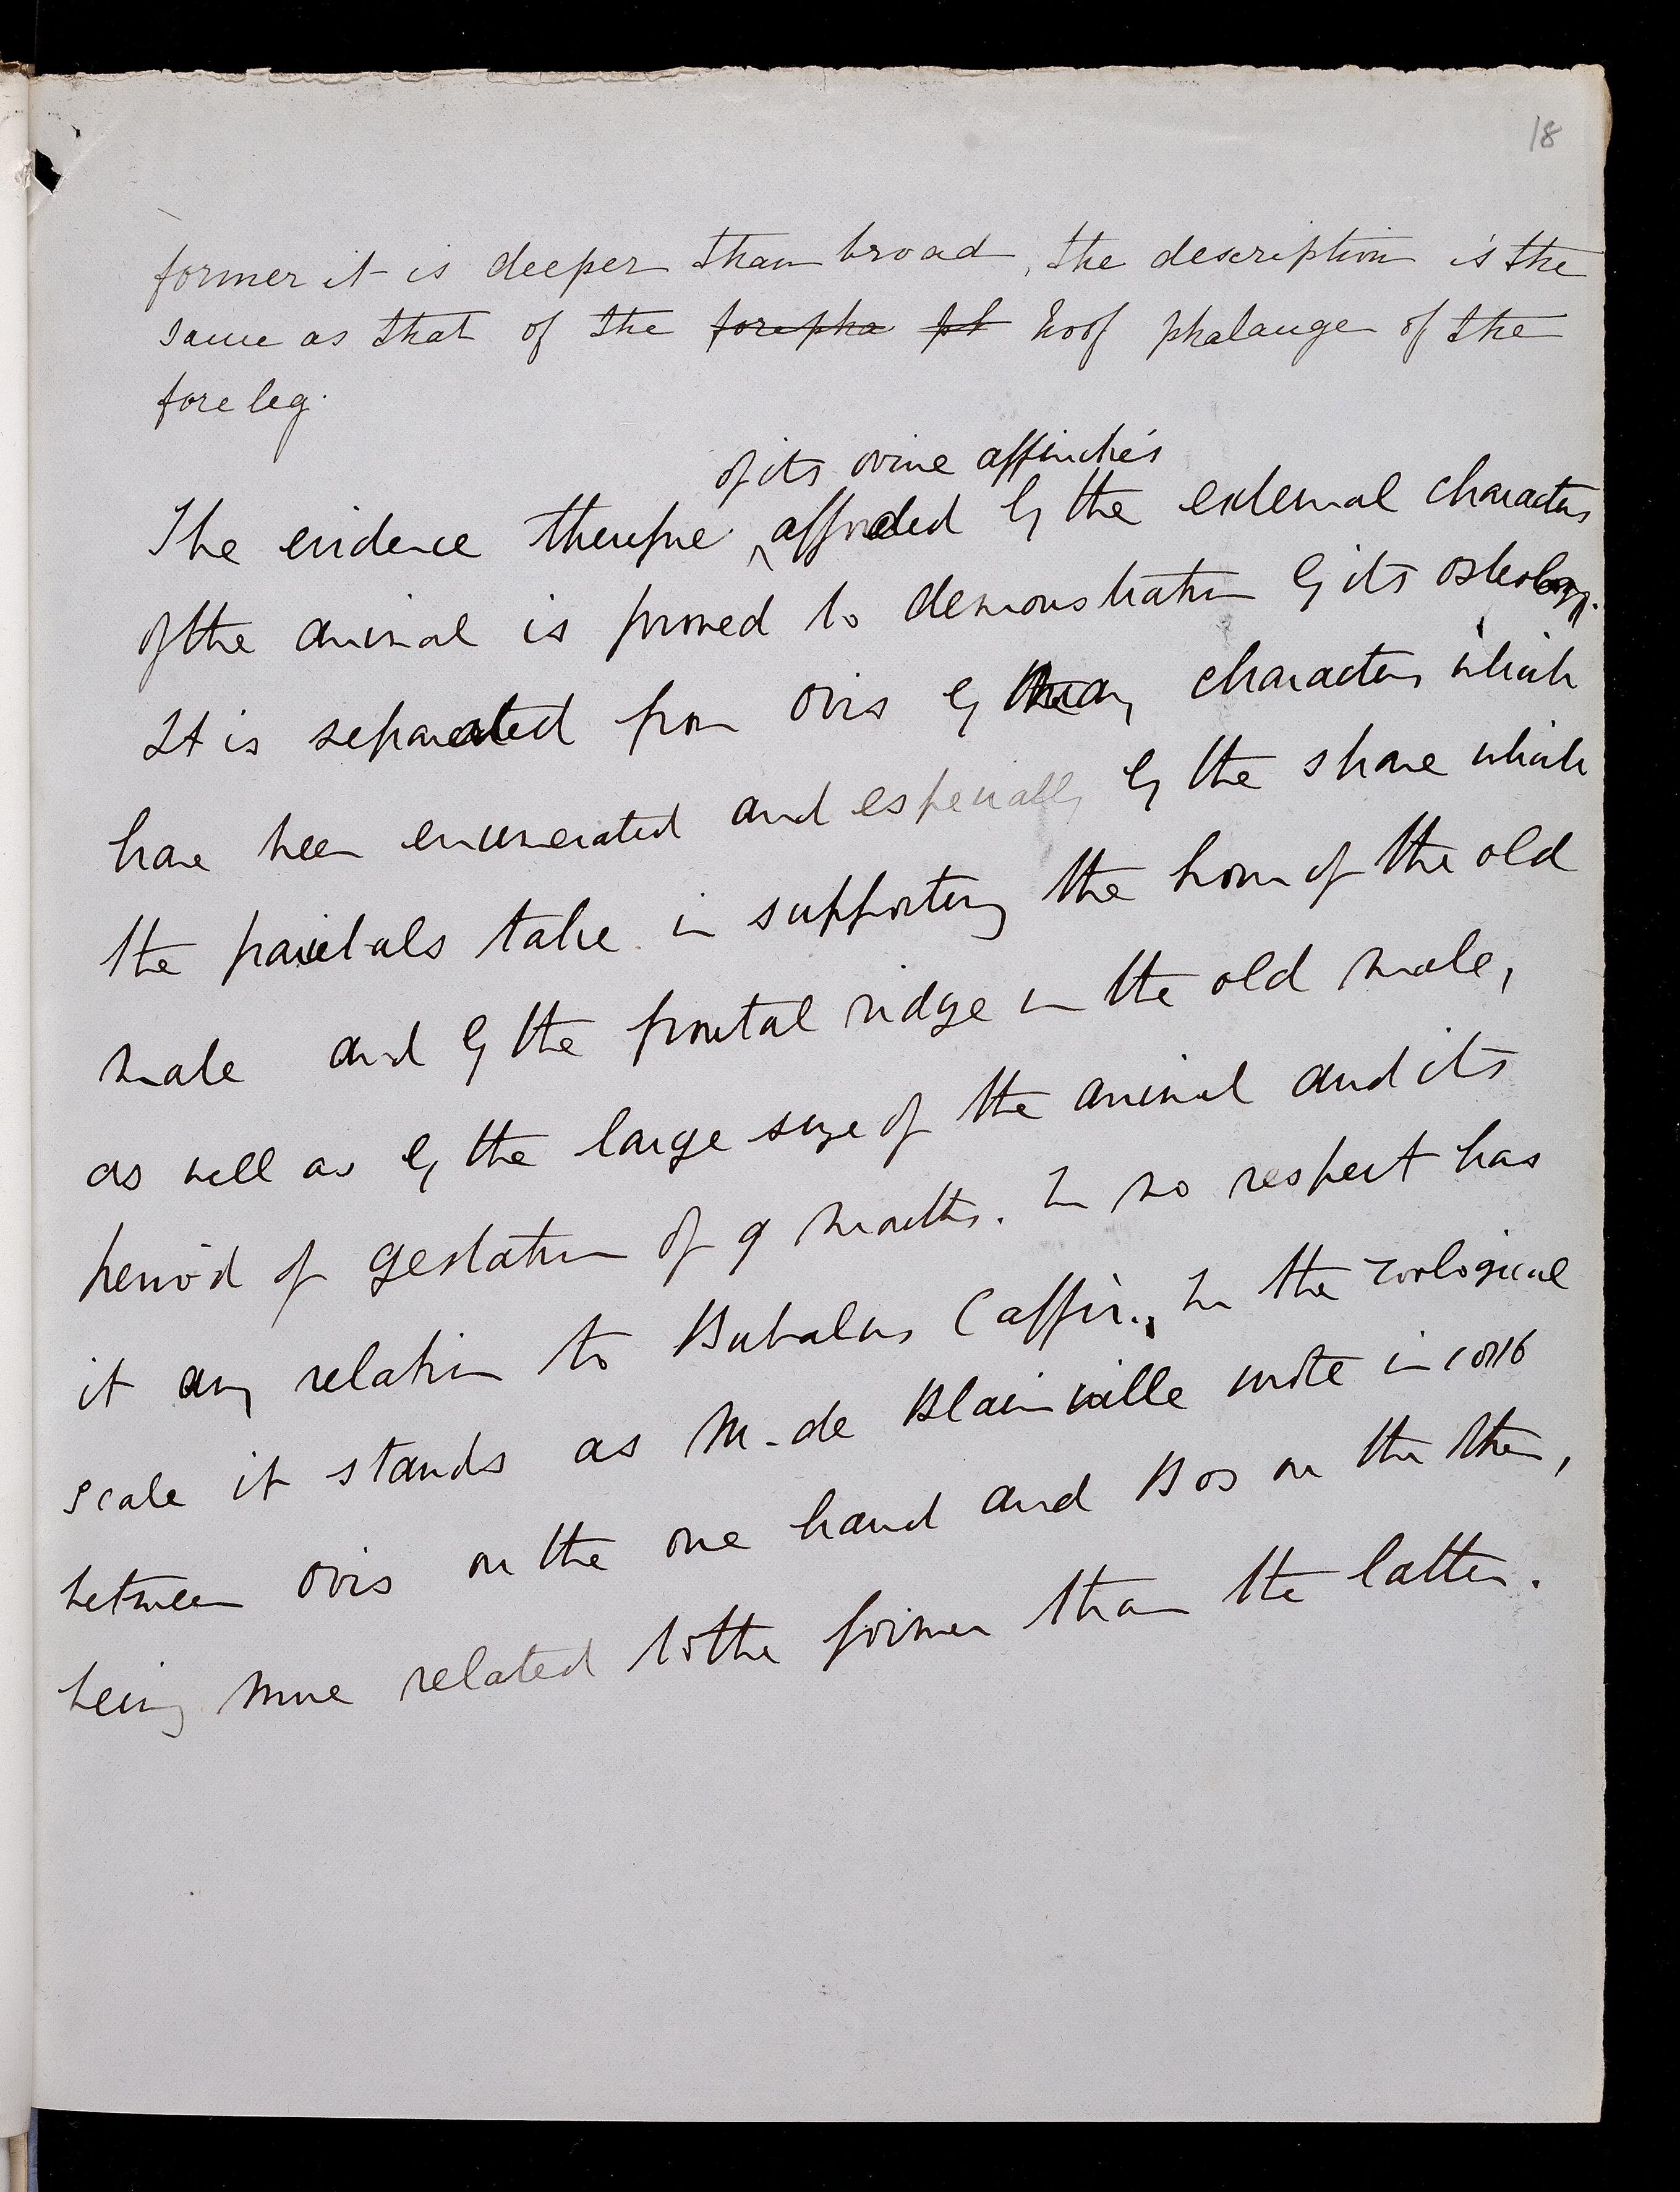 18
former it is deeper than broad, the description is the
same as that of the forepha pt hoof phalange of the
fore leg.
of its ovine affinities
The evidence therefore afforded by the external characters
of the animal is proved to demonstration by its osteology.
It is separated from Ovis by many characters which
have been enumerated and especially by the share which
the parietals take in supporting the horn of the old
male and by the frontal ridge in the old male,
as well as by the large size of the animal and its
period of gestation of 9 months. In no respect has
it any relation to Bubalus Caffir. In the zoological
scale it stands as M. de Blainville wrote in 1816
between Ovis on the one hand and Bos on the other,
being more related to the former than the latter.